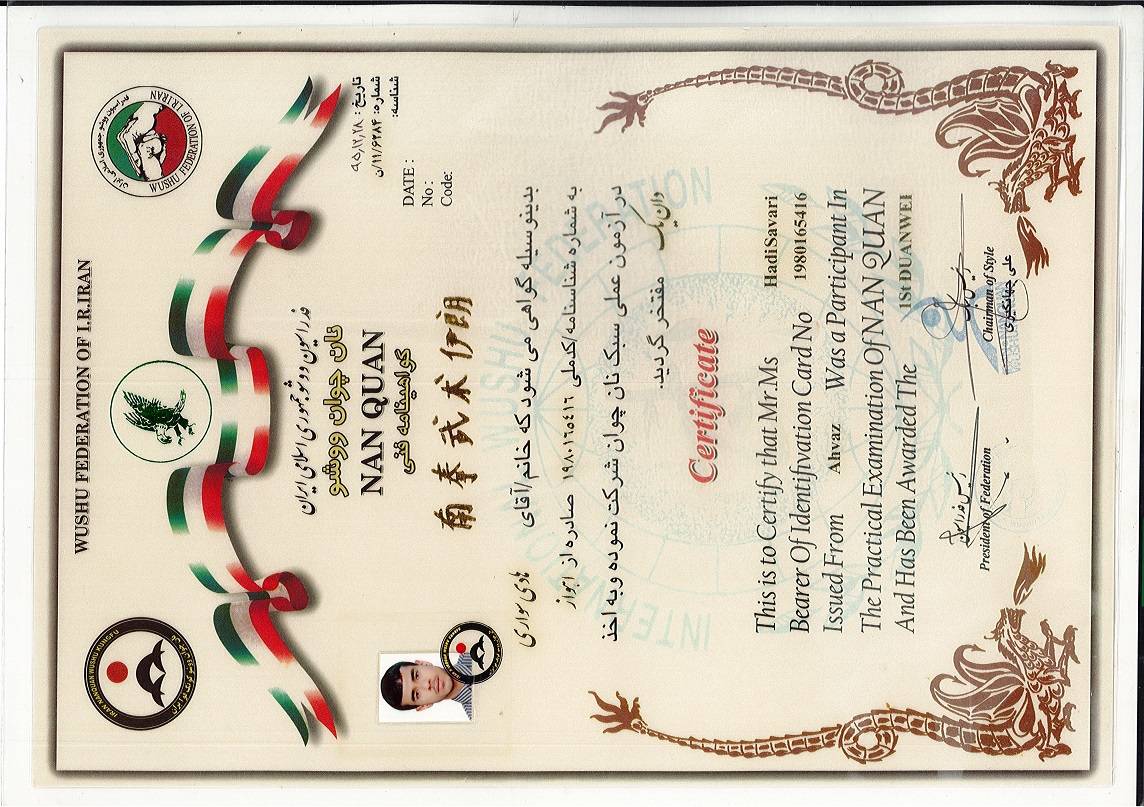 WUSHU FEDERATION OF I.R.IRAN
فدراسیون ووشو جمهوری اسلامی ایران
WUSHU FEDERATION OF I.R.IRAN
IRAN NANQUAN WUSHU KUNGFU
فدراسیون ووشو جمهوری اسلامی ایران
نان چوان ووشو
NAN QUAN
گواهینامه فنی
南拳武术伊朗
تاریخ: ۹۵,۱۲,۲۸
شماره: ۱۱/۶۲۸۴/ن
شناسه:
DATE :
No :
Code:
بدینوسیله گواهی می شود که خانم/آقای هادی سواری
به شماره شناسنامه/کدملی ۱۹۸۰۱۶۵۴۱۶ صادره از اهواز
در آزمون عملی سبک نان چوان شرکت نموده و به اخذ
دان یک مفتخر گردید.
INTERNATIONAL WUSHU FEDERATION
Certificate
This is to Certify that Mr.Ms Hadi Savari
Bearer Of Identifivation Card No 1980165416
Issued From Ahvaz Was a Participant In
The Practical Examination Of NAN QUAN
And Has Been Awarded The 1St DUANWEI
رئیس فدراسیون
President of Federation
رئیس سبک
Chairman of Style
علی جهانگیری